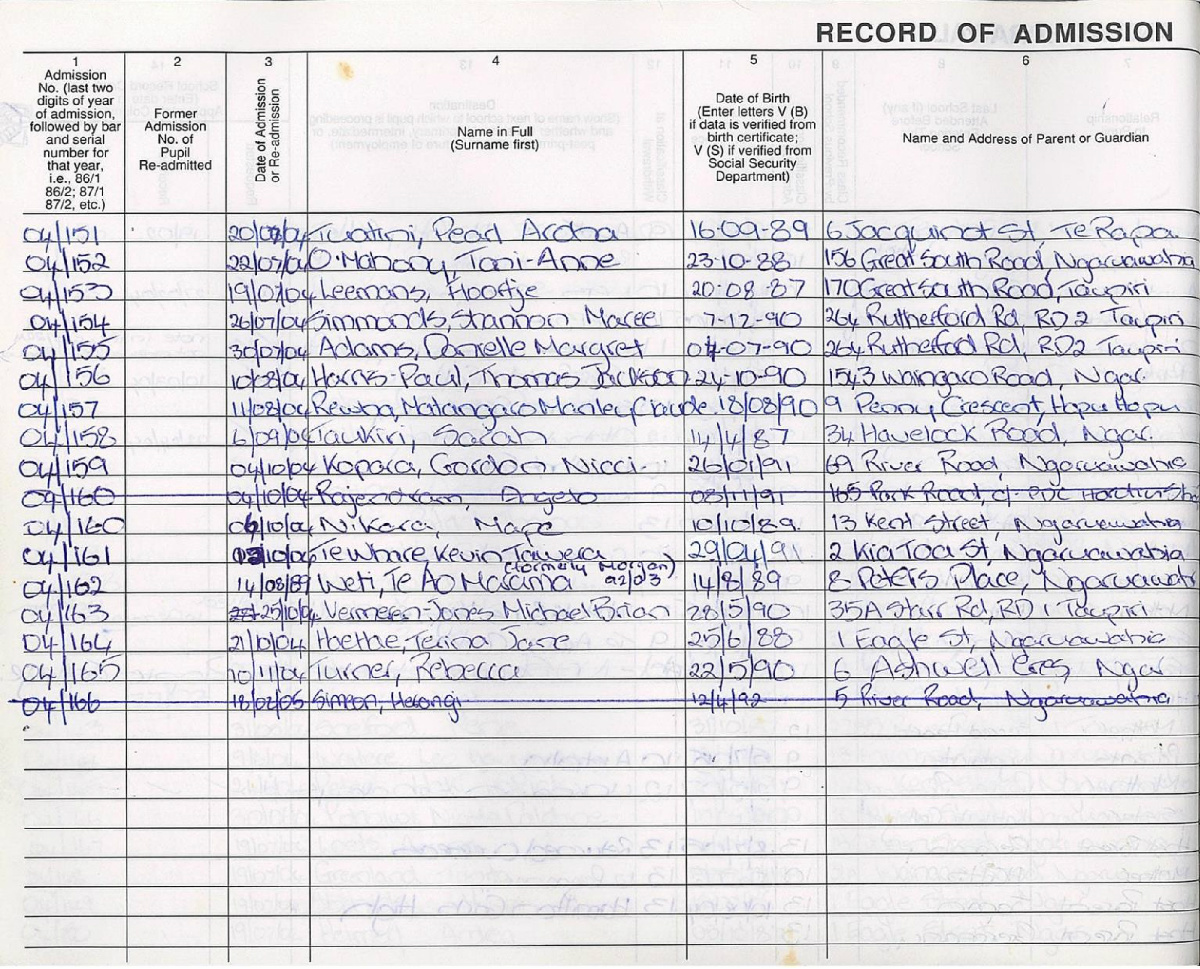 RECORD OF ADMISSION
1 2 3 4 5 6
Admission No. (last two digits of year of admission, followed by bar and serial number for that year, i.e., 86/1 86/2; 87/1 87/2, etc.)
Former Admission No. of Pupil Re-admitted
Date of Admission or Re-admission
Name in Full (Surname first)
Date of Birth (Enter letters V (B) if data is verified from birth certificate; V (S) if verified from Social Security Department)
Name and Address of Parent or Guardian
04/151 20/07/04 Tuatini, Pearl Aroha 16-09-89 6 Jacquinot St, Te Rapa
04/152 22/07/04 O'Mahony, Toni-Anne 23-10-88 156 Great South Road, Ngaruawahia
04/153 19/07/04 Leemans, Hooftje 20-08-87 170 Great South Road, Taupiri
04/154 26/07/04 Simmonds, Shannon Maree 7-12-90 264 Rutherford Rd, RD2 Taupiri
04/155 30/07/04 Adams, Danielle Margret 04-07-90 264 Rutherford Rd, RD2 Taupiri
04/156 10/08/04 Harris-Paul, Thomas Jackson 24-10-90 1543 Waingaro Road, Ngar.
04/157 11/08/04 Manley Claude 18/08/90 9 Penny Crescent, Hopu Hopu
04/158 6/09/04 Taukiri, Sarah 14/4/87 34 Havelock Road, Ngar.
04/159 04/10/04 Kopara, Gordon Nicci 26/01/91 69 River Road, Ngaruawahia
04/160 04/10/04 03/11/91 165 Park Road,
04/160 /10/04 Nikara, 10/10/89 13 Kent Street, Ngaruawahia
04/161 /10/04 Te Whare, Kevin Tawera 29/04/91 2 Kia Toa St, Ngaruawahia
04/162 14/08/89 Weti, Te Ao Marama (formerly Morgan) 92/03 14/8/89 8 Peters Place, Ngaruawahia
04/163 25/10/04 Vermeren-Jones Michael Brian 28/5/90 35A Starr Rd, RD1 Taupiri
04/164 21/10/04 Hoethe, Terina Jane 25/6/88 1 Eagle St, Ngaruawahia
04/165 10/11/04 Turner, Rebecca 22/5/90 6 Ashwell Cres Ngar
04/166 18/02/05 Simeon, Herongi 12/4/92 5 River Road, Ngaruawahia